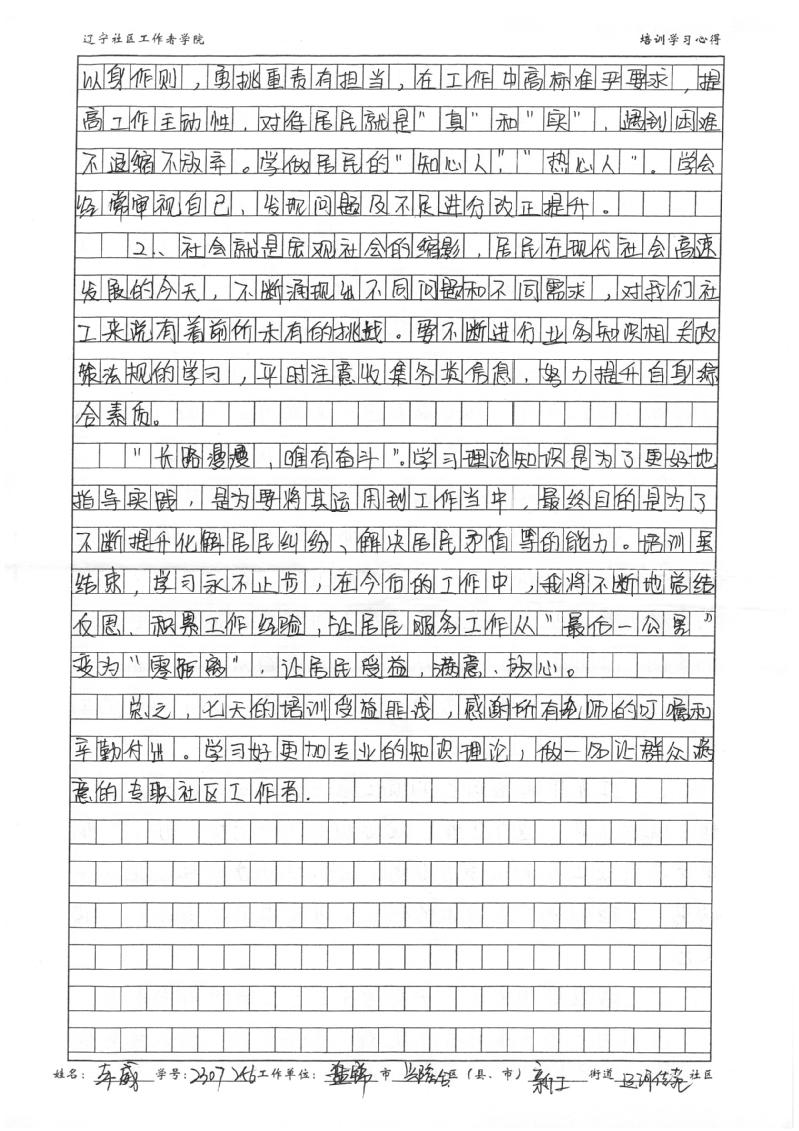 辽宁社区工作者学院 培训学习心得
以身作则，勇挑重责有担当，在工作中高标准乎要求，提
高工作主动性，对待居民就是"真"和"实"，遇到困难
不退缩不放弃。学做居民的"知心人""热心人"。学会
经常审视自己，发现问题及不足进行改正提升。
2、社会就是宏观社会的缩影，居民在现代社会高速
发展的今天，不断涌现出不同问题和不同需求，对我们社
工来说有着前所未有的挑战。要不断进行业务知识相关政
策法规的学习，平时注意收集各类信息，努力提升自身综
合素质。
"长路漫漫，唯有奋斗"。学习理论知识是为了更好地
指导实践，是为要将其运用到工作当中，最终目的是为了
不断提升化解居民纠纷、解决居民矛盾等的能力。培训虽
结束，学习永不止步，在今后的工作中，我将不断地总结
反思、积累工作经验，让居民服务工作从"最后一公里"
变为"零距离"，让居民受益，满意、放心。
总之，七天的培训受益匪浅，感谢所有老师的叮嘱和
辛勤付出。学习好更加专业的知识理论，做一名让群众满
意的专职社区工作者.
姓名：车威 学号：2307256 工作单位：盘锦市 兴隆台区（县、市）新工 街道 辽河佳苑 社区